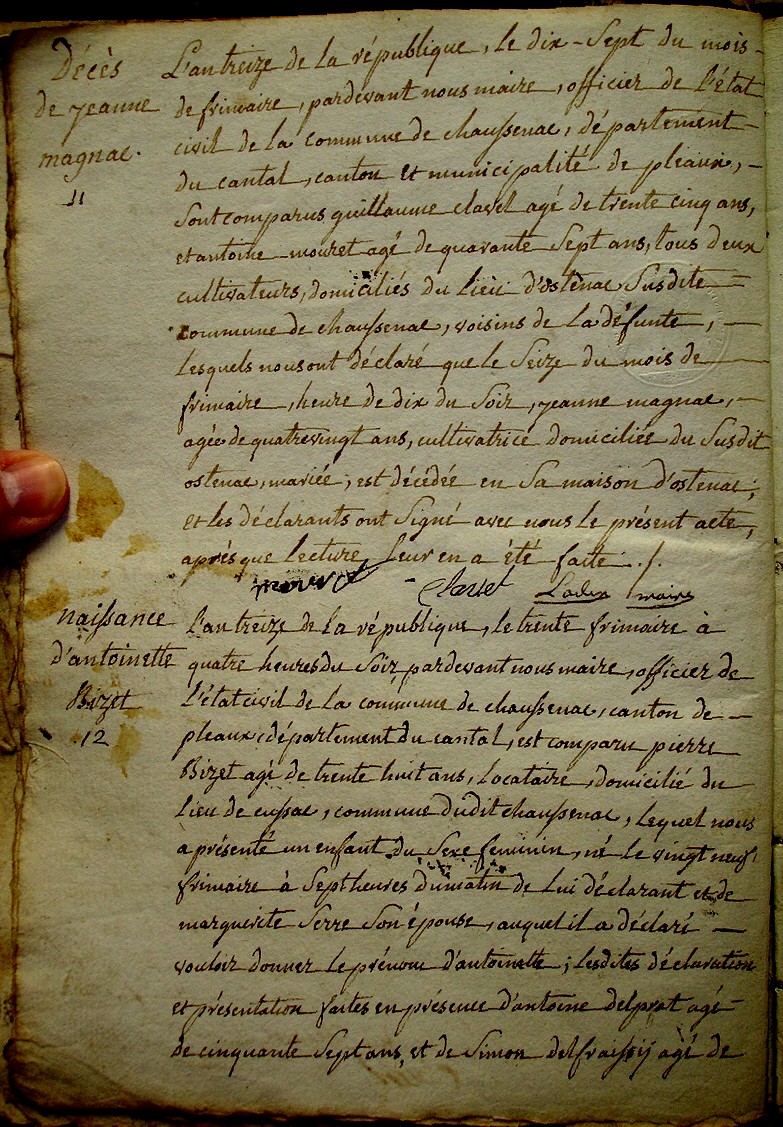 Décès
de jeanne
magnac.
11
L'an treize de la république, le dix-Sept du mois -
de frimaire, pardevant nous maire, officier de l'état
civil de la commune de chaussenac, département -
du cantal, canton et municipalité de pleaux, -
Sont comparus guillaume clavel agé de trente cinq ans,
et antoine mouret agé de quarante Sept ans, tous deux
cultivateurs, domiciliés du lieu d'ostenac Susdite
commune de chaussenac, voisins de la défunte, -
lesquels nous ont déclaré que le Seize du mois de
frimaire, heure de dix du Soir, jeanne magnac, -
agée de quatrevingt ans, cultivatrice domiciliée du Susdit
ostenac, mariée, est décédée en Sa maison d'ostenac;
et les déclarants ont Signé avec nous le présent acte,
après que lecture leur en a été faite ./.
mouret - Clavel maire
naissance
d'antoinette
Bizet
12
L'an treize de la république, le trente frimaire à
quatre heures du Soir, pardevant nous maire, officier de
l'état civil de la commune de chaussenac, canton de -
pleaux, département du cantal, est comparu pierre
Bizet agé de trente huit ans, locataire, domicilié du
lieu de cussac, commune dudit chaussenac, lequel nous
a présenté un enfant du Sexe feminin, né le vingt neuf
frimaire à Sept heures du matin de lui déclarant et de
marguerite Serre Son épouse, auquel il a déclaré -
vouloir donner le prénom d'antoinette; lesdites déclaration
et présentation faites en présence d'antoine delprat agé -
de cinquante Sept ans, et de Simon delfraissij agé de